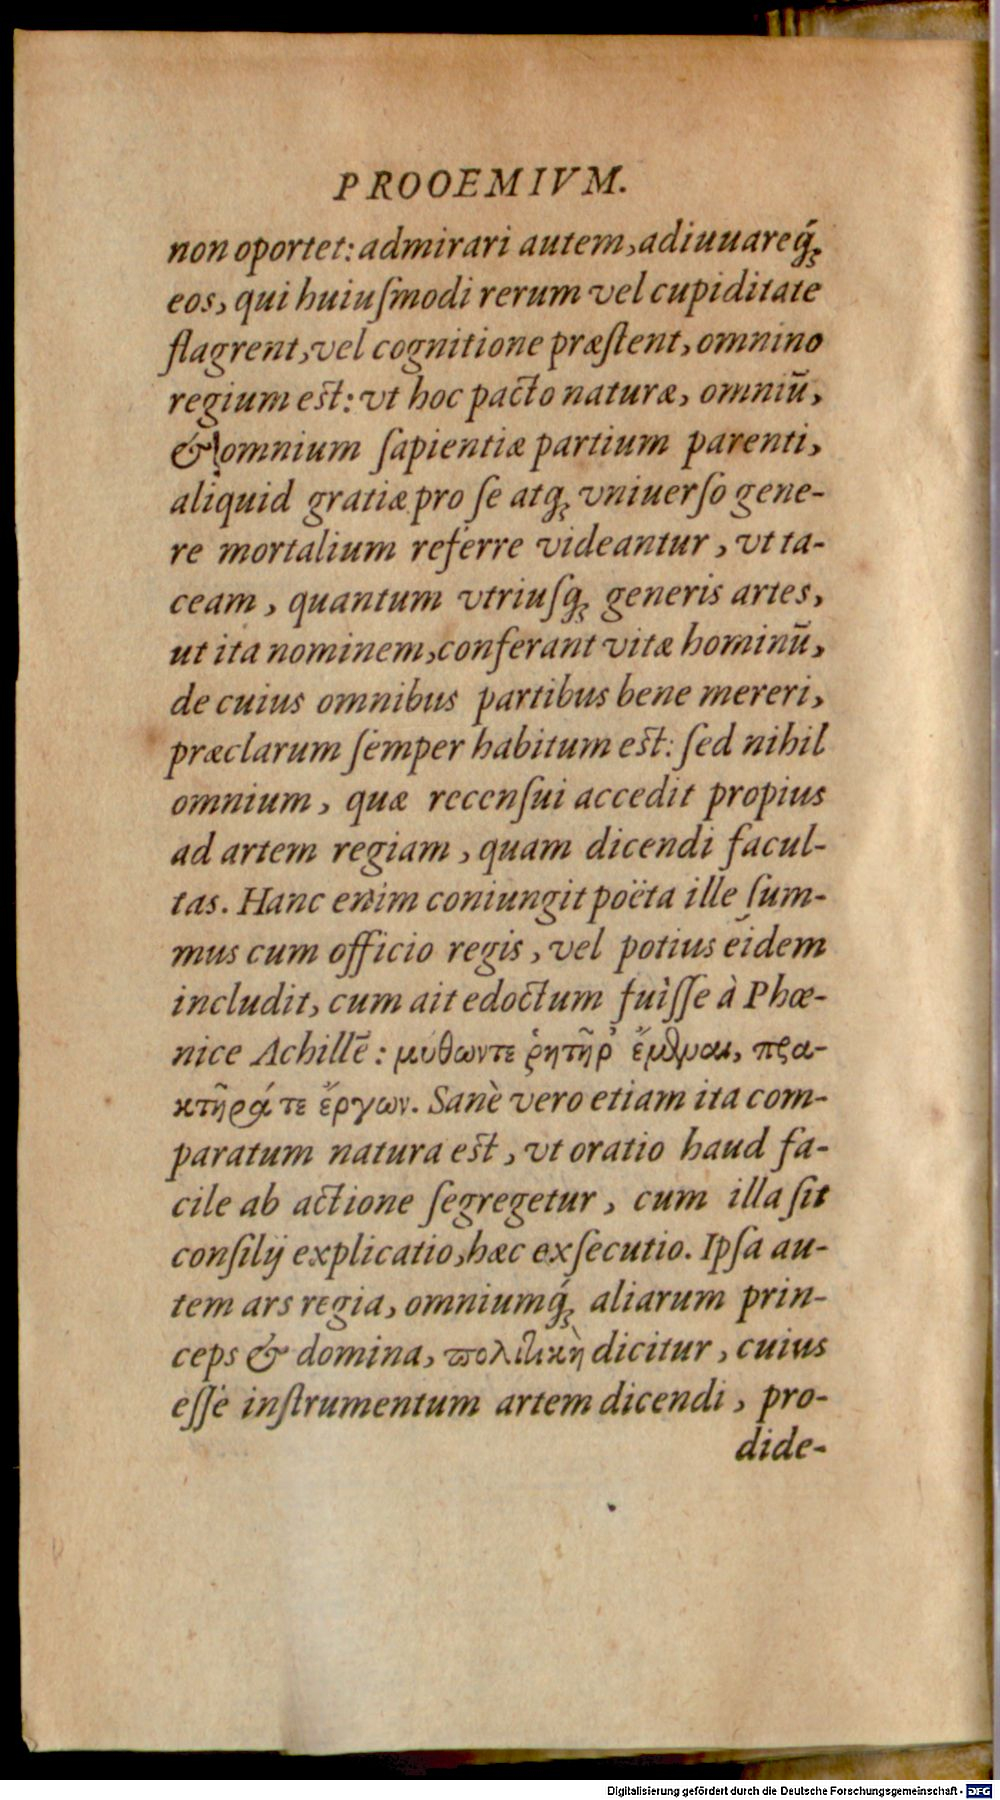 PROOEMIVM.
non oportet: admirari autem, adiuuareq́;
eos, qui huiuſmodi rerum vel cupiditate
flagrent, vel cognitione præſtent, omnino
regium est: vt hoc pacto naturæ, omniū,
& omnium ſapientiæ partium parenti,
aliquid gratiæ pro ſe atq; vniuerſo gene-
re mortalium referre videantur, vt ta-
ceam, quantum vtriuſq; generis artes,
ut ita nominem, conferant vitæ hominū,
de cuius omnibus partibus bene mereri,
præclarum ſemper habitum est: ſed nihil
omnium, quæ recenſui accedit propius
ad artem regiam, quam dicendi facul-
tas. Hanc enim coniungit poëta ille ſum-
mus cum officio regis, vel potius eidem
includit, cum ait edoctum fuiſſe à Phœ-
nice Achillē: μύθωντε ῥητῆρ᾽ ἔμθμαι, πρα-
κτῆρά τε ἔργων. Sanè vero etiam ita com-
paratum natura est, vt oratio haud fa-
cile ab actione ſegregetur, cum illa ſit
conſilij explicatio, hæc exſecutio. Ipſa au-
tem ars regia, omniumq́; aliarum prin-
ceps & domina, πολιτικὴ dicitur, cuius
eſſe inſtrumentum artem dicendi, pro-
dide-
Digitalisierung gefördert durch die Deutsche Forschungsgemeinschaft - DFG